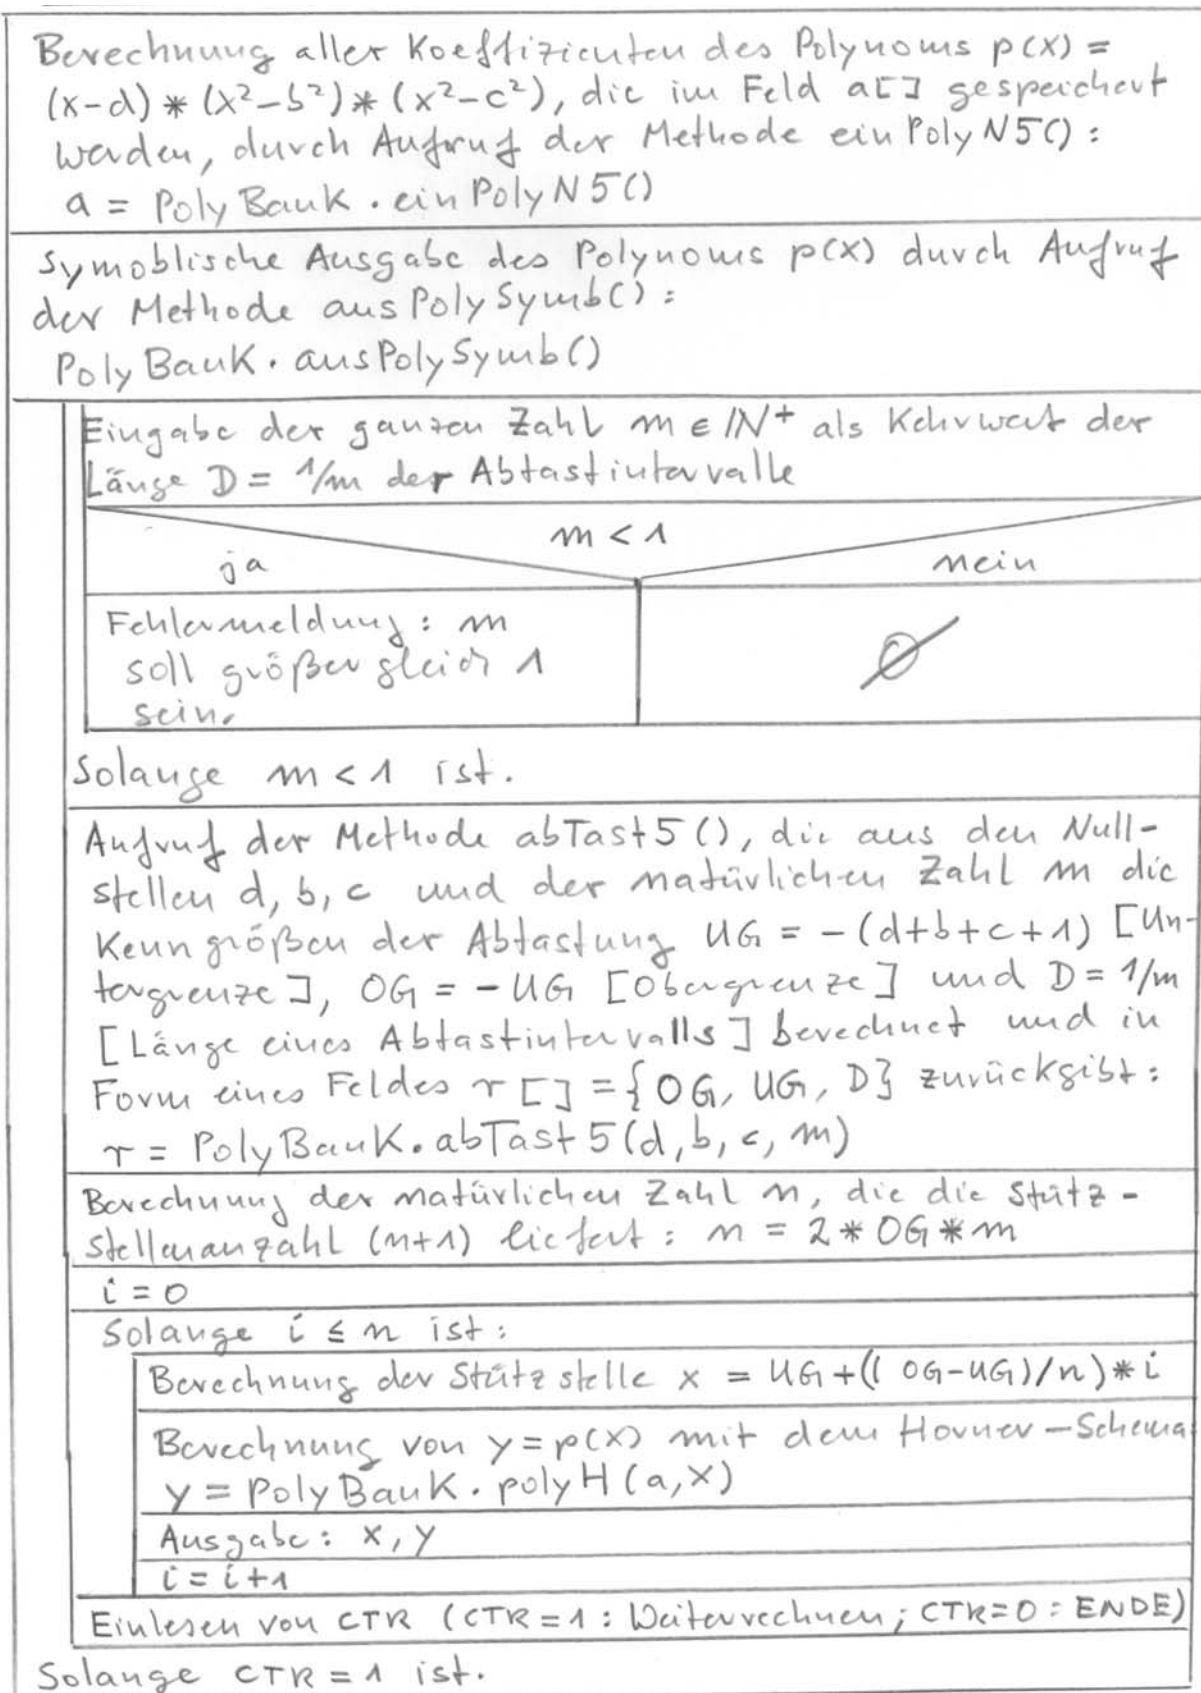 Berechnung aller Koeffizienten des Polynoms p(x) =
(x-d) * (x²-b²) * (x²-c²), die im Feld a[] gespeichert
werden, durch Aufruf der Methode einPolyN5() :
a = PolyBank.einPolyN5()
Symoblische Ausgabe des Polynoms p(x) durch Aufruf
der Methode ausPolySymb() :
PolyBank.ausPolySymb()
Eingabe der ganzen Zahl m ∈ IN⁺ als Kehrwert der
Länge D = 1/m der Abtastintervalle
m < 1
ja nein
Fehlermeldung : m
soll größer gleich 1
sein.
Ø
Solange m < 1 ist.
Aufruf der Methode abTast5(), die aus den Null-
stellen d, b, c und der natürlichen Zahl m die
Kenngrößen der Abtastung UG = - (d+b+c+1) [Un-
tergrenze], OG = - UG [Obergrenze] und D = 1/m
[Länge eines Abtastintervalls] berechnet und in
Form eines Feldes r[] = {OG, UG, D} zurückgibt :
r = PolyBank.abTast5(d, b, c, m)
Berechnung der natürlichen Zahl n, die die Stütz-
stellenanzahl (n+1) liefert : n = 2 * OG * m
i = 0
Solange i ≤ n ist :
Berechnung der Stützstelle x = UG + ((OG-UG)/n) * i
Berechnung von y = p(x) mit dem Horner-Schema
y = PolyBank.polyH(a,x)
Ausgabe : x, y
i = i+1
Einlesen von CTR (CTR=1 : Weiterrechnen ; CTR=0 : ENDE)
Solange CTR = 1 ist.